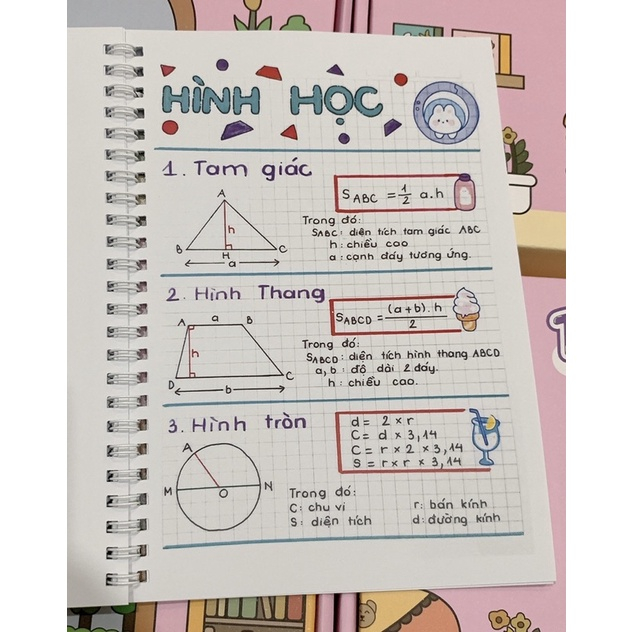 HÌNH HỌC
1. Tam giác
S ABC = 1/2 a.h
A
h
B
H
C
a
Trong đó:
SABC: diện tích tam giác ABC
h: chiều cao
a: cạnh đáy tương ứng.
2. Hình Thang
S ABCD = (a+b).h / 2
A
a
B
h
D
b
C
Trong đó:
SABCD: diện tích hình thang ABCD
a, b: độ dài 2 đáy.
h: chiều cao.
3. Hình tròn
d = 2 × r
C = d × 3,14
C = r × 2 × 3,14
S = r × r × 3,14
A
M
O
N
Trong đó:
C: chu vi
r: bán kính
S: diện tích
d: đường kính